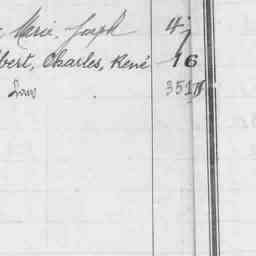 Marie, Joseph 47
bert, Charles, René 16
Louis 351